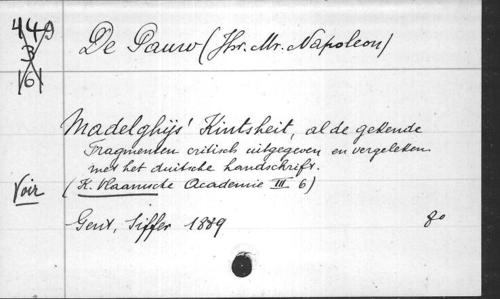 449
3
6
De Pauw (Jhr. Mr. Napoleon)
Madelghijs' Kintsheit, al de gekende
Fragmenten critisch uitgegeven en vergeleken
met het duitsche handschrift.
Voir
(K. Vlaamsche Academie III 6)
Gent, Siffer 1889
8o